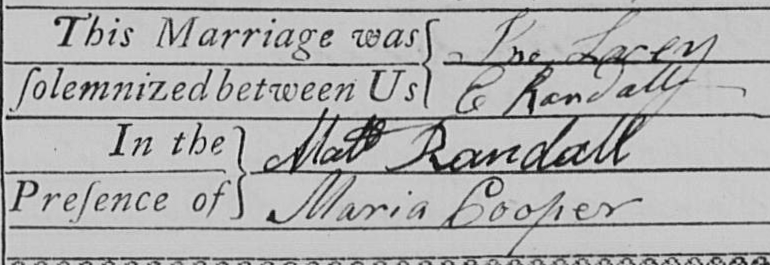 This Marriage was Jno Lacey
ſolemnized between Us E Randall
In the Matt Randall
Preſence of Maria Cooper